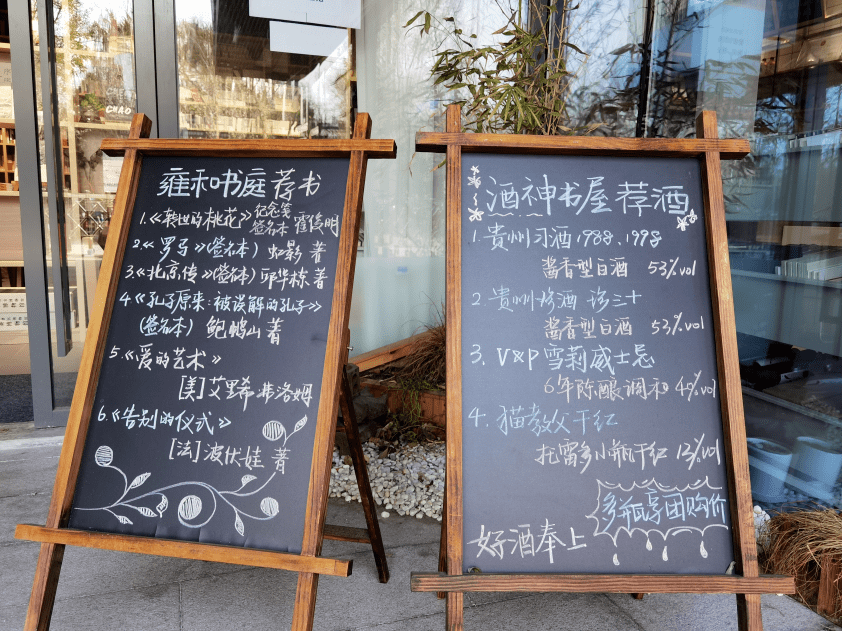 雍和书庭 荐书
1.《转世的桃花》纪念笺 签名本 霍俊明
2.《罗子》(签名本) 虹影 著
3.《北京传》(签名本) 邱华栋 著
4.《孔子原来:被误解的孔子》
(签名本) 鲍鹏山 著
5.《爱的艺术》
[美]艾里希·弗洛姆
6.《告别的仪式》
[法]波伏娃 著
酒神书屋 荐酒
1. 贵州习酒 1988、1998
酱香型白酒 53%vol
2. 贵州珍酒 珍三十
酱香型白酒 53%vol
3. V&P 雪莉威士忌
6年陈酿调和 40%vol
4. 猫教父干红
托雷多小瓶干红 13%vol
多瓶享团购价
好酒奉上
CIAO